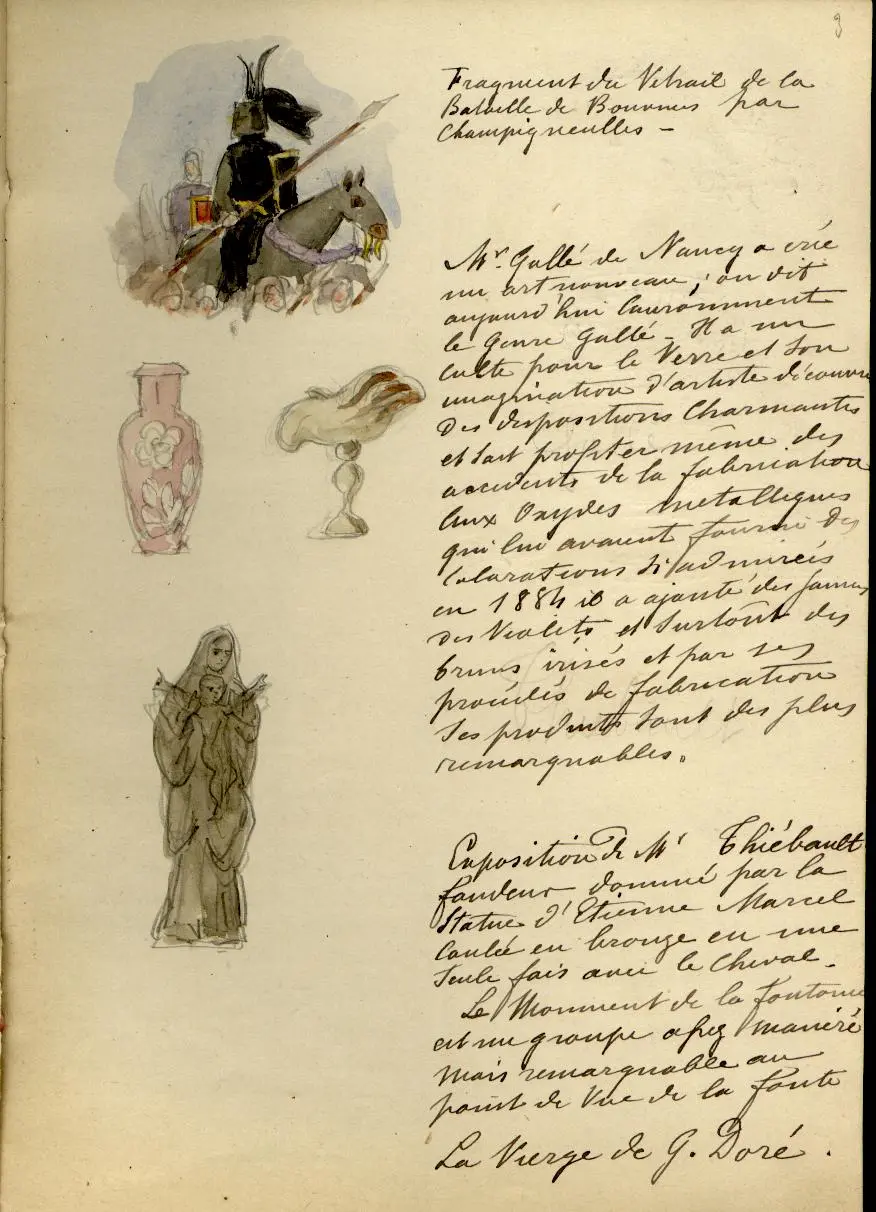 3
Fragment du Vitrail de la
Bataille de Bouvines par
Champigneulles –
Mr. Gallé de Nancy a créé
un art nouveau, on dit
aujourd'hui couramment
le Genre Gallé – Il a un
culte pour le Verre et son
imagination d'artiste découvre
Des dispositions Charmantes
et sait profiter même des
accidents de la fabrication
Aux Oxydes metalliques
qui lui avaient fourni des
Colorations si admirées
en 1884 il a ajouté des jaunes
des Violets et surtout des
bruns irisés et par ses
procédés de fabrication
ses produits sont des plus
remarquables.
Exposition de Mr Thiébault
fondeur dominé par la
Statue d'Etienne Marcel
Coulée en bronze en une
seule fois avec le Cheval –
Le Monument de la fontaine
est un groupe assez maniéré
mais remarquable au
point de Vue de la fonte
La Vierge de G. Doré.